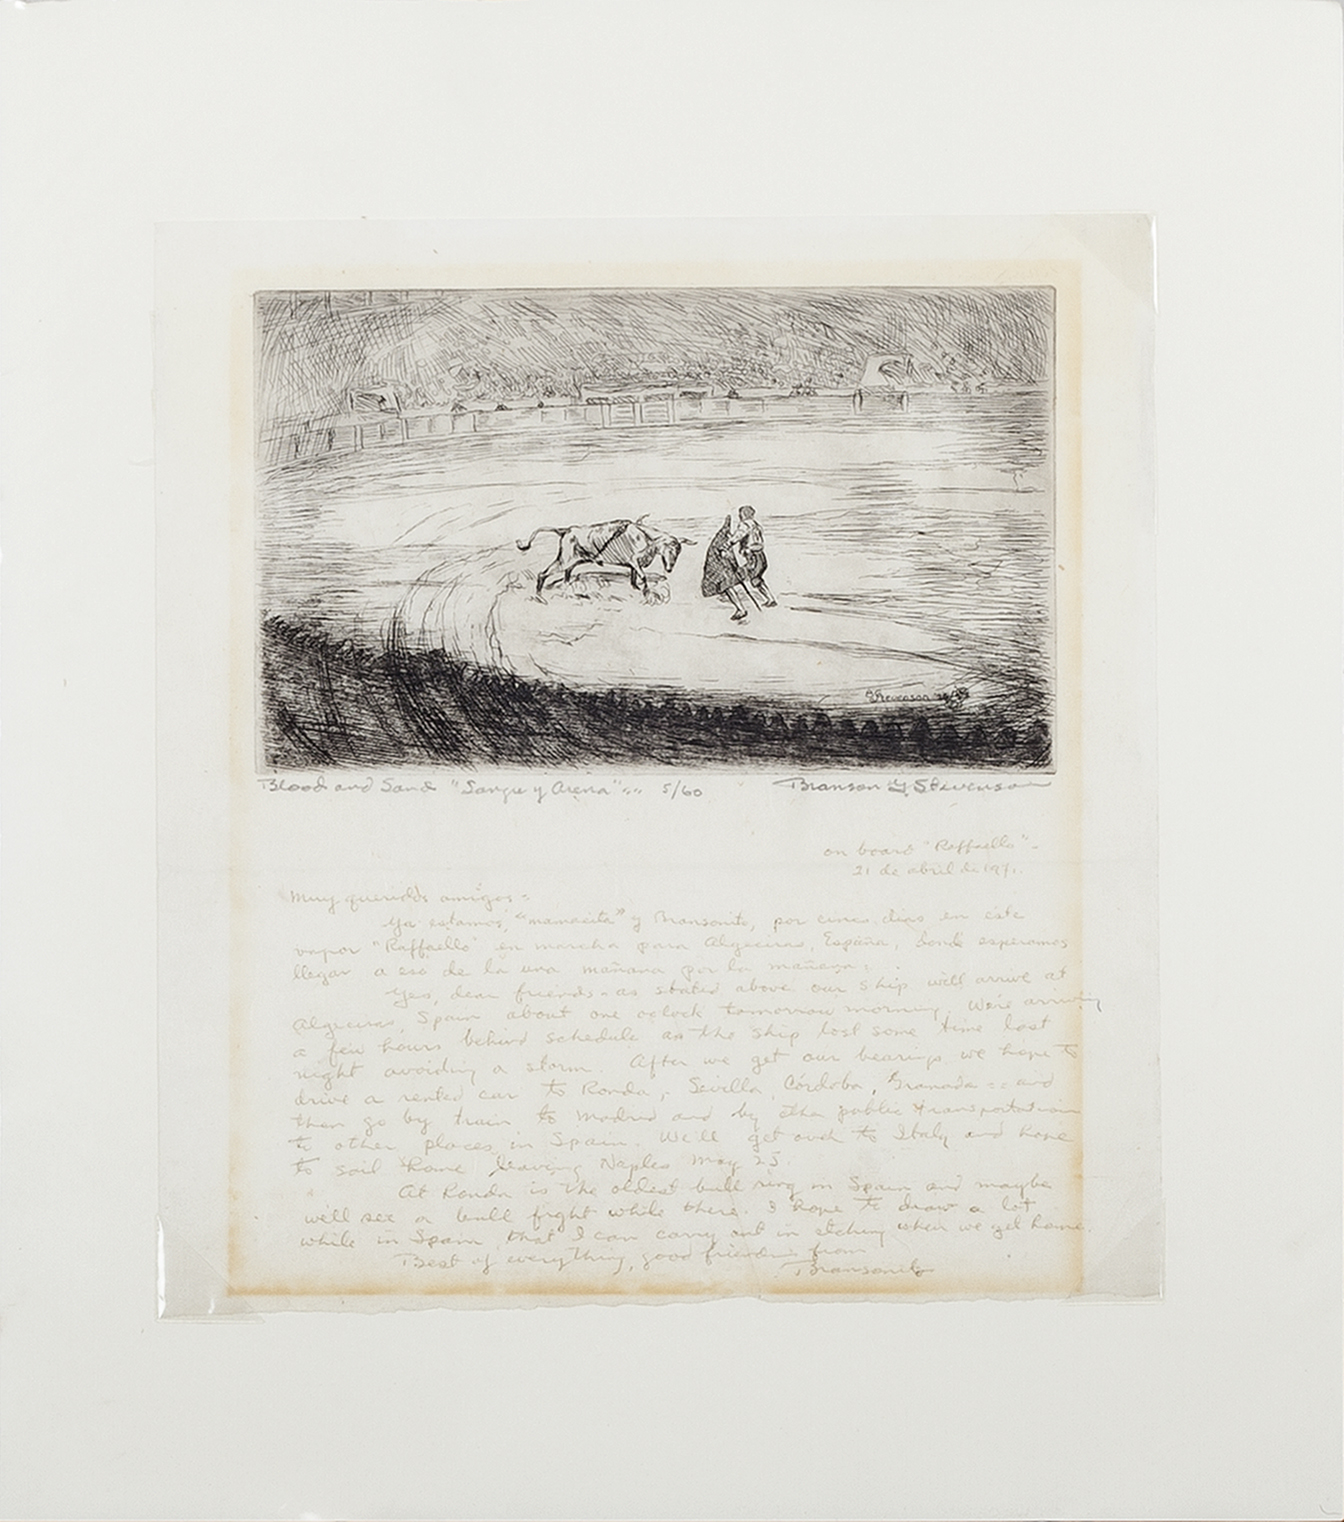 B Stevenson
Blood and Sand "Sangre y Arena" 5/60 Branson G Stevenson
on board "Raffaello"-
21 de abril de 1971.
Muy queridos amigos:
Ya estamos, "mamacita" y Bransonito, por cinco dias en este
vapor "Raffaello" en marcha para Algeciras, España, donde esperamos
llegar a eso de la una mañana por la mañana.
Yes, dear friends - as stated above our ship will arrive at
Algeciras, Spain about one oclock tomorrow morning. We're arriving
a few hours behind schedule as the ship lost some time last
night avoiding a storm. After we get our bearings we hope to
drive a rented car to Ronda, Sevilla, Córdoba, Granada -- and
then go by train to Madrid and by other public transportation
to other places in Spain. We'll get over to Italy and hope
to sail home leaving Naples May 25.
At Ronda is the oldest bull ring in Spain and maybe
we'll see a bull fight while there. I hope to draw a lot
while in Spain that I can carry out in etching when we get home.
Best of everything, good friends from
Bransonito